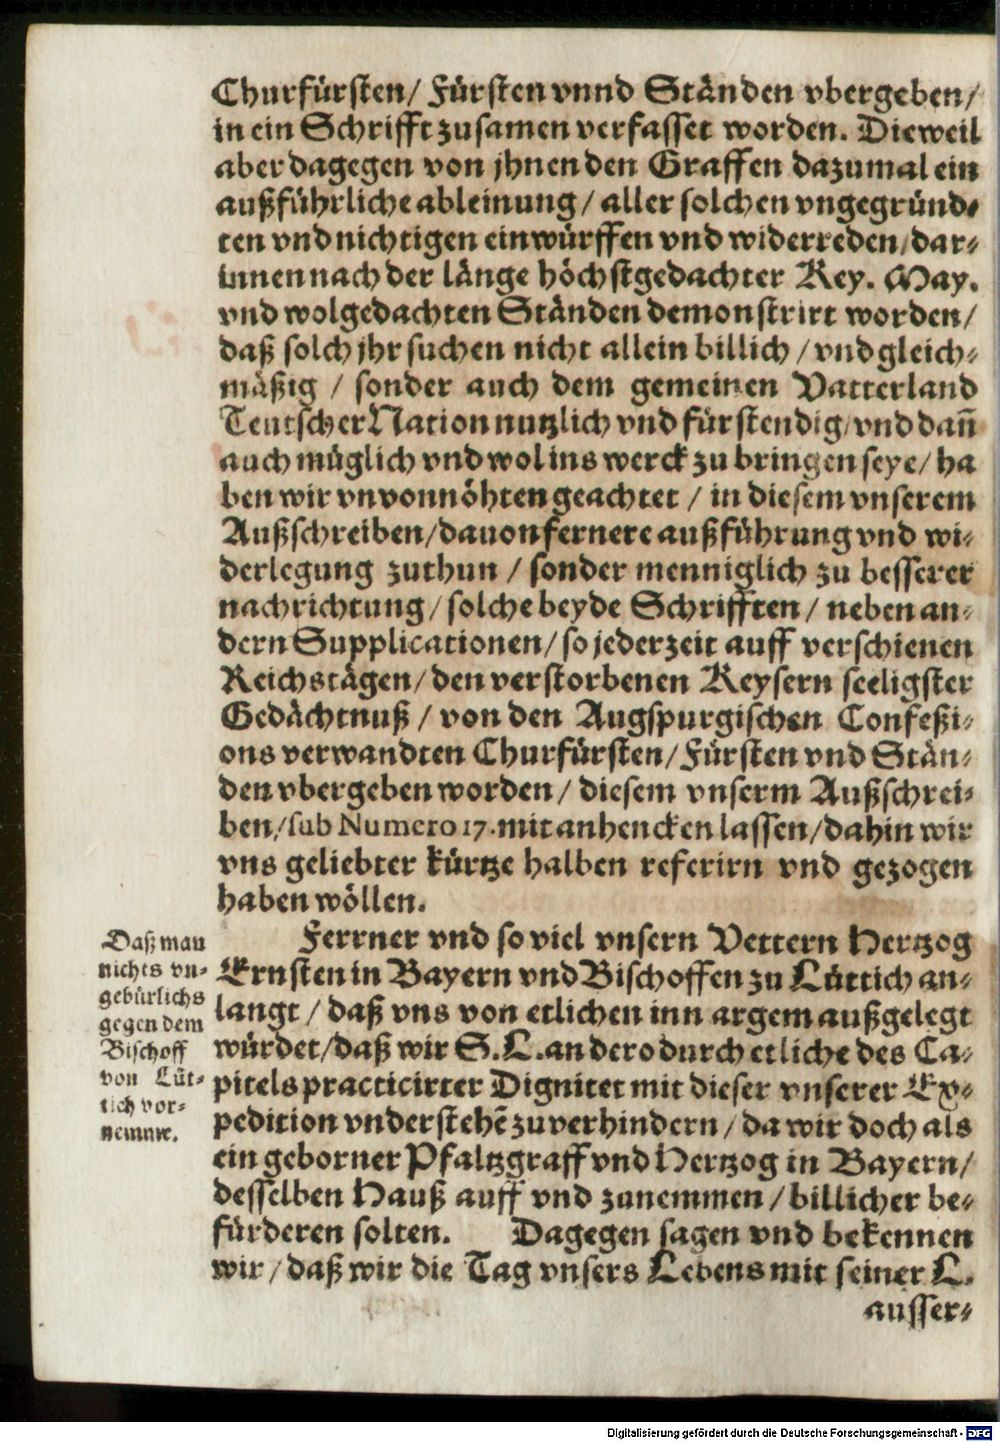 Churfürsten/ Fürsten vnnd Ständen vbergeben/
in ein Schrifft zusamen verfasset worden. Dieweil
aber dagegen von jhnen den Graffen dazumal ein
außführliche ableinung/ aller solchen vngegründ-
ten vnd nichtigen einwürffen vnd widerreden/ dar-
innen nach der länge höchstgedachter Key. May.
vnd wolgedachten Ständen demonstrirt worden/
daß solch jhr suchen nicht allein billich/ vnd gleich-
mäßig/ sonder auch dem gemeinen Vatterland
Teutscher Nation nutzlich vnd fürstendig/ vnd dañ
auch müglich vnd wol ins werck zu bringen seye/ ha
ben wir vnvonnöhten geachtet/ in diesem vnserem
Außschreiben/ dauon fernere außführung vnd wi-
derlegung zuthun/ sonder menniglich zu besserer
nachrichtung/ solche beyde Schrifften/ neben an-
dern Supplicationen/ so jederzeit auff verschienen
Reichstägen/ den verstorbenen Keysern seeligster
Gedächtnuß/ von den Augspurgischen Confeßi-
ons verwandten Churfürsten/ Fürsten vnd Stän-
den vbergeben worden/ diesem vnserm Außschrei-
ben/ sub Numero 17. mit anhencken lassen/ dahin wir
vns geliebter kürtze halben referirn vnd gezogen
haben wöllen.
Daß man
nichts vn-
gebürlichs
gegen dem
Bischoff
von Lüt-
tich vor-
nemme.
Ferrner vnd so viel vnsern Vettern Hertzog
Ernsten in Bayern vnd Bischoffen zu Lüttich an-
langt/ daß vns von etlichen inn argem außgelegt
würdet/ daß wir S. L. an dero durch etliche des Ca-
pitels practicirter Dignitet mit dieser vnserer Ex-
pedition vnderstehẽ zuverhindern/ da wir doch als
ein geborner Pfaltzgraff vnd Hertzog in Bayern/
desselben Hauß auff vnd zunemmen/ billicher be-
fürderen solten. Dagegen sagen vnd bekennen
wir/ daß wir die Tag vnsers Lebens mit seiner L.
ausser-
Digitalisierung gefördert durch die Deutsche Forschungsgemeinschaft - DFG